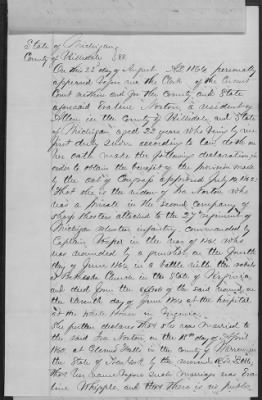 State of Michigan
County of Hillsdale } SS.
On this 23d day of August AD 1864, personally
appeared before me the Clerk of the Circuit
Court within and for the County and State
aforesaid Evaline Norton, a resident of
Allen in the County of Hillsdale and State
of Michigan aged 23 years who being by me
first duly sworn according to law doth on
her oath make the following declaration in
order to obtain the benefit of the provision made
by the act of Congress approved July 14, 1862:
That she is the widow of Ira Norton who
was a private in the second company of
sharp shooters attached to the 27th regiment of
Michigan volunteer infantry commanded by
Captain in the war of 1861 who
was wounded by a gunshot on the fourth
day of June 1864 in a battle with the rebels
at Bethesda Church in the State of Virginia
and died from the effect of the said wound, on
the eleventh day of June 1864 at the hospital
at the White House in Virginia.
She further declares that she was married to
the said Ira Norton on the 18th day of April
1860 at Glens Falls in the County of Warren in
the State of New York by the
that her name before such marriage was Eva-
line Whipple, and that there is no public